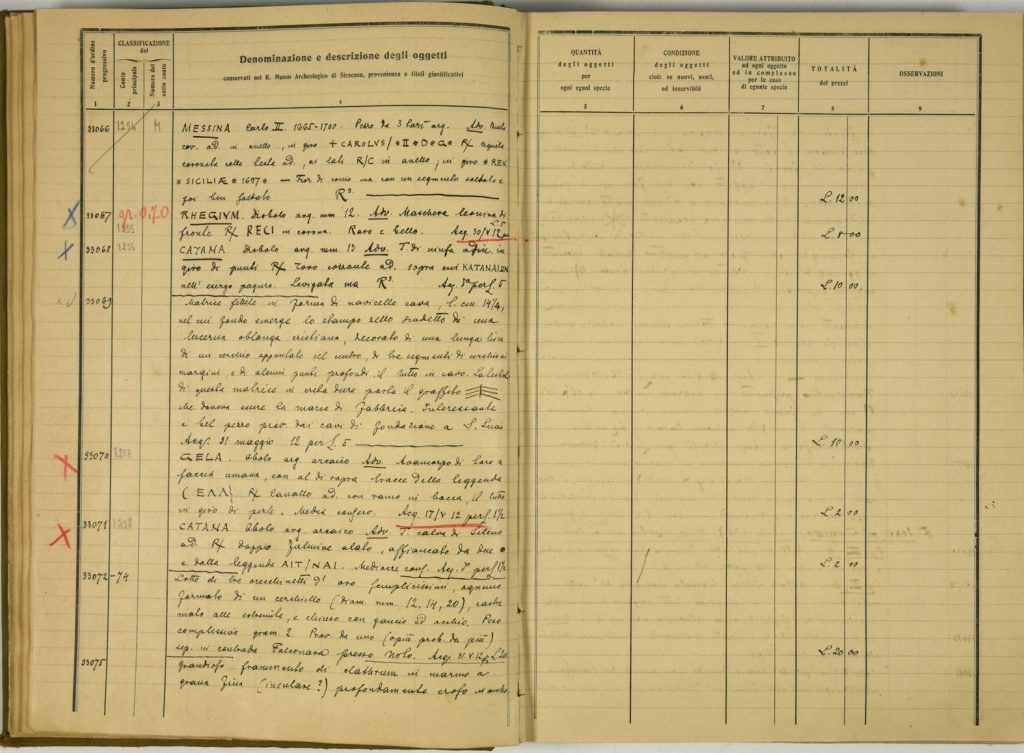 Numero d'ordine progressivo
CLASSIFICAZIONE del
Conto principale
Numero del sotto conto
Denominazione e descrizione degli oggetti
conservati nel R. Museo Archeologico di Siracusa, provenienza e titoli giustificativi
1 2 3 4
33066 7254 M MESSINA Carlo II. 1665-1700. Pezzo da 3 tarì arg. Adv. Busto
cor. ad. in anello, in giro +CAROLVS/*II*D*G* R/ aquila
coronata colla testa ad., ai lati R/C in anello; in giro *REX
*SICILIÆ*1697* — Fior di conio ma con un segmento saldato e
poi ben saldato R³
33067 gr. 0,70 RHEGIVM. Diobolo arg. mm 12. Adv. Maschera leonina di
7255 fronte R/ RECI in corona. Raro e bello. Acq. 30/V 12 L. 5
33068 7256 CATANA Diobolo arg. mm. 13 Adv. T. di ninfa adr. in
giro di punti R/ Toro corrente ad. sopra cui KATANAION
nell' esergo paguro. Levigata ma R³. Acq. per L. 5
33069
Matrice fittile in forma di navicella cava, l. cm. 14/4,
nel cui fondo emerge lo stampo detto scudetto di una
lucerna oblonga cristiana, decorato di una lunga lisca
di un cerchio appuntato nel centro, di tre segmenti di cerchio ai
margini, e di alcuni punti profondi, il tutto in cavo. La
di questa matrice in creta dura porta il graffito
che doveva essere la marca di fabbrica. Interessante
e bel pezzo prov. dai cavi di fondazione a S. Lucia
Acq. 31 maggio 12 per L. 5
33070 7257 GELA. Obolo arg. arcaico Adv. Avancorpo di toro a
faccia umana, con al di sopra tracce della leggenda
(ΕΛΛ) R/ Cavallo ad. con ramo in bocca, il tutto
in giro di perle. Media conserv. Acq. 17/V 12 per L. 1½
33071 7258 CATANA Obolo arg. arcaico Adv. T. calva di Sileno
ad. R/ doppio fulmine alato, affiancato da due
e dalla leggenda AIT/NAI. Mediocre cons. Acq. per L. 1½
33072-74
Lotto di tre orecchinetti d' oro semplicissimi, ognuno
formato di un cerchietto (diam. mm. 12, 14, 20), rastre
mato alle estremità, e chiuso con gancio ed occhio. Peso
complessivo gram. 2. Prov. da uno (o più prob. da più)
sep. in contrada Falconara presso Noto. Acq. 31.V.12 p. L. 20
33075
Grandioso frammento di clathrum in marmo a
grana fina (insulare?) profondamente eroso
QUANTITÀ degli oggetti per ogni egual specie
CONDIZIONE degli oggetti cioè: se nuovi, usati, od inservibili
VALORE ATTRIBUITO ad ogni oggetto ed in complesso per le cose di eguale specie
TOTALITÀ dei prezzi
OSSERVAZIONI
5 6 7 8 9
L. 12 00
L. 8 00
L. 10 00
L. 10 00
L. 2 00
L. 2 00
L. 20 00